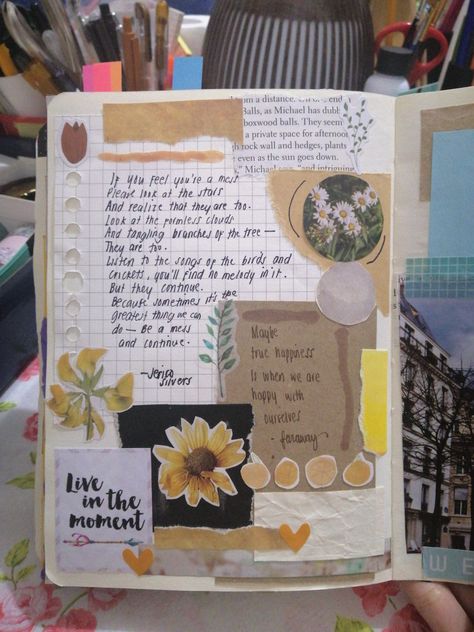 from a distance.
Balls, as Michael has dubb
boxwood balls. They seem
a private space for afternoon
rock wall and hedges, plants
even as the sun goes down.
If you feel you're a mess
Please look at the stars
And realize that they are too.
Look at the formless clouds
And tangling branches of the tree —
They are too.
Listen to the songs of the birds and
crickets, you'll find no melody in it.
But they continue.
Because sometimes it's the
greatest thing we can
do — Be a mess
and continue.
— Jerico
Silvers
Maybe
true happiness
is when we are
happy with
ourselves
- faraway
Live
in the
moment
W E